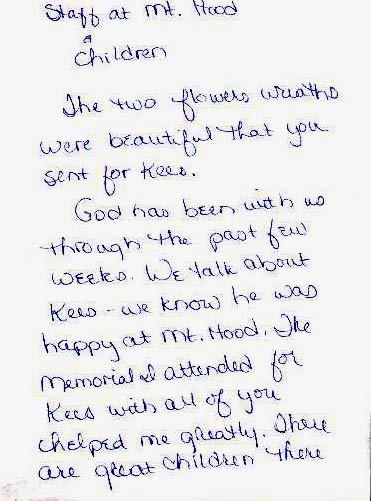 Staff at Mt. Hood
&
Children
The two flowers wreaths
were beautiful that you
sent for Kees.
God has been with us
through the past few
weeks. We talk about
Kees - we know he was
happy at Mt. Hood. The
Memorial I attended for
Kees with all of you
helped me greatly. There
are great children there